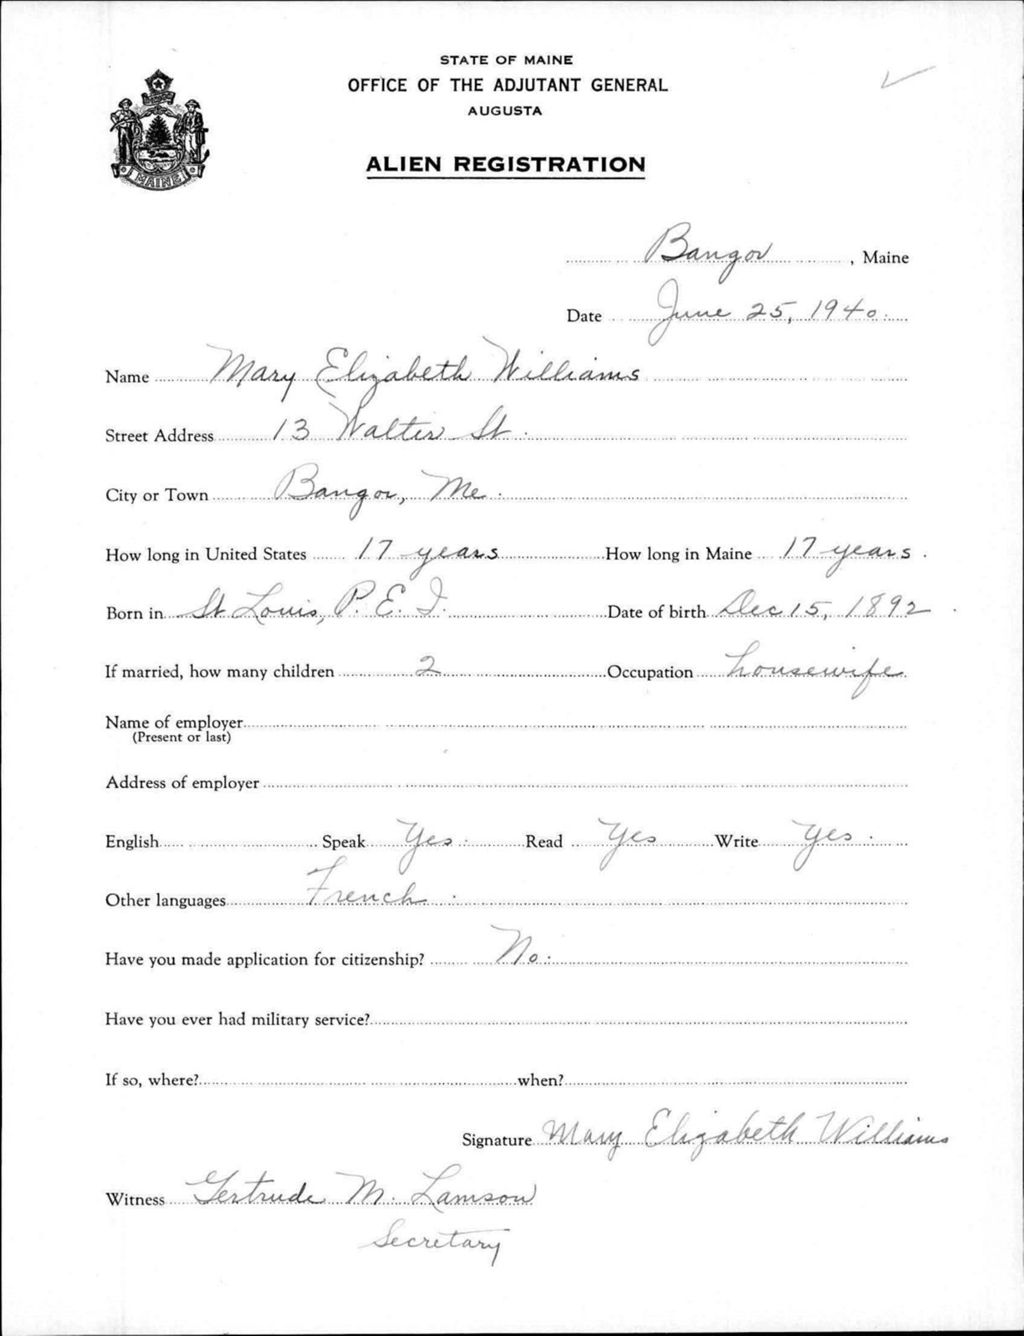 STATE OF MAINE
OFFICE OF THE ADJUTANT GENERAL
AUGUSTA
ALIEN REGISTRATION
MAINE
Bangor, Maine
Date June 25, 1940.
Name Mary Elizabeth Williams
Street Address 13 Walter St.
City or Town Bangor, Me.
How long in United States 17 years How long in Maine 17 years.
Born in St Louis, P. E. I. Date of birth Dec 15, 1892.
If married, how many children 2 Occupation housewife
Name of employer
(Present or last)
Address of employer
English Speak Yes. Read Yes Write Yes.
Other languages French.
Have you made application for citizenship? No.
Have you ever had military service?
If so, where? when?
Signature Mary Elizabeth Williams
Witness Gertrude M. Lamson
Secretary